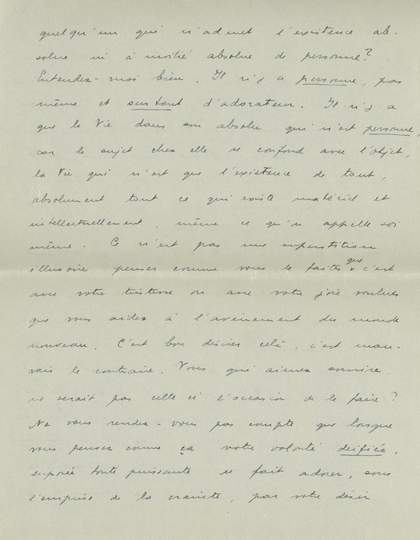 quelqu'un qui n'admet l'existence ab-
solue ni à moitié absolue de personne?
Entendez-moi bien. Il n'y a personne, pas
même et surtout d'adorateur. Il n'y a
que la Vie dans son absolu qui n'est personne,
car le sujet chez elle se confond avec l'objet,
la Vie qui n'est que l'existence de tout,
absolument tout ce qui existe matériel et
intellectuellement, même ce qui s'appelle soi
même. Ce n'est pas une superstition
illusoire penser comme vous le faites que c'est
avec votre tristesse ou avec votre joie voulues
que vous aidez à l'avènement du monde
nouveau. C'est bon désirer cela, c'est mau-
vais le contraire. Vous qui aimez sourire
ne serait pas celle ci l'occasion de le faire?
Ne vous rendez-vous pas compte que lorsque
vous pensez comme ça votre volonté déifiée,
supposée toute puissante se fait adorer, sous
l'emprise de la crainte, par votre désir